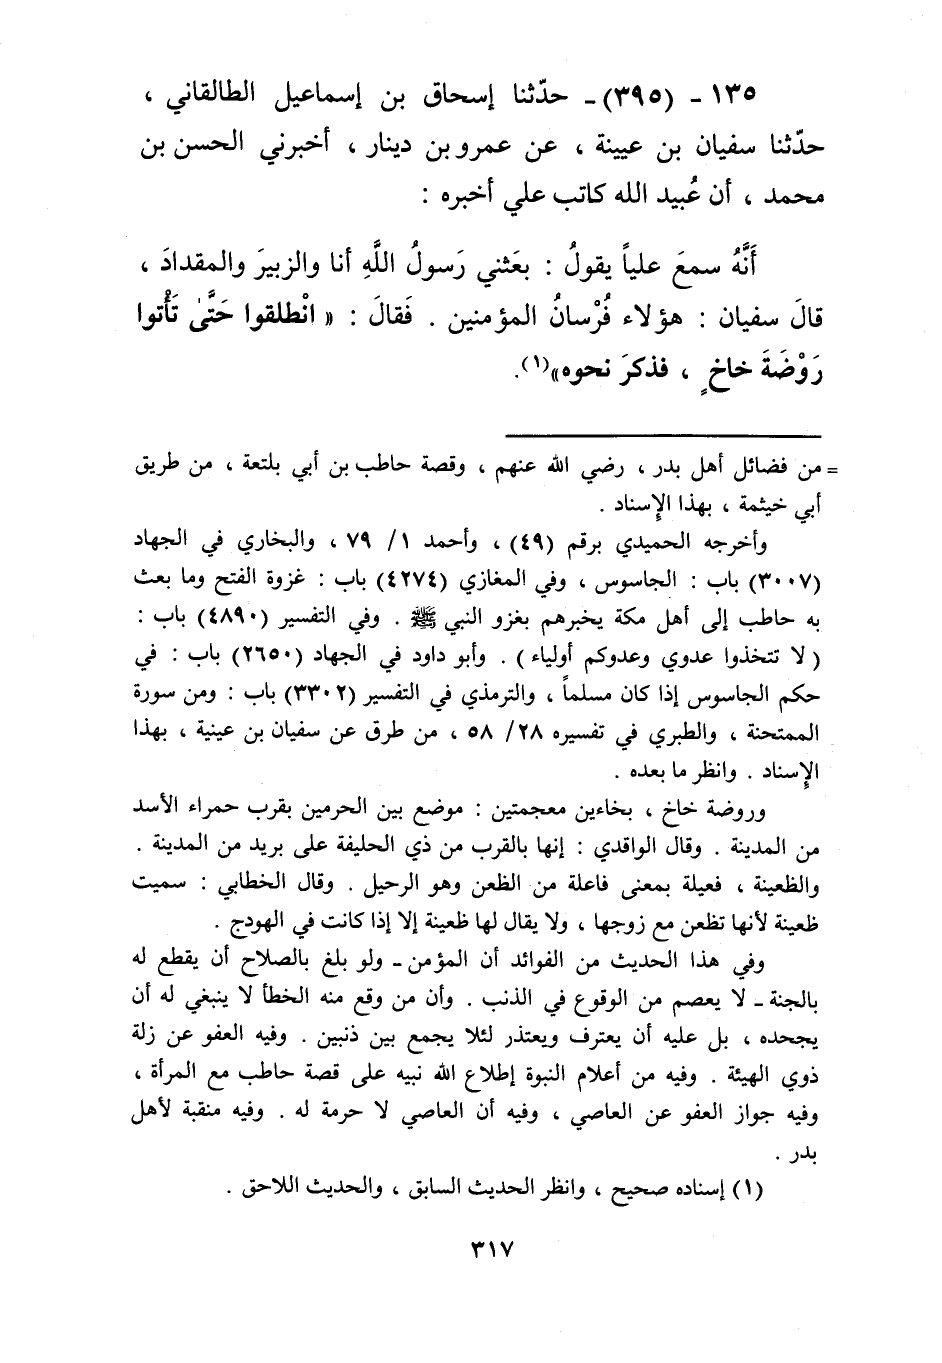 ١٣٥ - (٣٩٥) - حدّثنا إسحاق بن إسماعيل الطالقاني ،
حدّثنا سفيان بن عيينة ، عن عمرو بن دينار ، أخبرني الحسن بن
محمد ، أن عُبيد الله كاتب علي أخبره :
أَنَّهُ سمعَ علياً يقولُ : بعَثني رَسولُ اللَّهِ أنا والزبيرَ والمقدادَ ،
قالَ سفيان : هؤلاء فُرْسانُ المؤمنين . فَقالَ : « انْطلقوا حَتَّىٰ تَأْتوا
رَوْضَةَ خاخٍ ، فذكرَ نحوه»(١).
= من فضائل أهل بدر ، رضي الله عنهم ، وقصة حاطب بن أبي بلتعة ، من طريق
أبي خيثمة ، بهذا الإِسناد .
وأخرجه الحميدي برقم (٤٩) ، وأحمد ١/ ٧٩ ، والبخاري في الجهاد
(٣٠٠٧) باب : الجاسوس ، وفي المغازي (٤٢٧٤) باب : غزوة الفتح وما بعث
به حاطب إلى أهل مكة يخبرهم بغزو النبي ﷺ . وفي التفسير (٤٨٩٠) باب :
( لا تتخذوا عدوي وعدوكم أولياء ) . وأبو داود في الجهاد (٢٦٥٠) باب : في
حكم الجاسوس إذا كان مسلماً ، والترمذي في التفسير (٣٣٠٢) باب : ومن سورة
الممتحنة ، والطبري في تفسيره ٢٨/ ٥٨ ، من طرق عن سفيان بن عينية ، بهذا
الإِسناد . وانظر ما بعده .
وروضة خاخ ، بخاءين معجمتين : موضع بين الحرمين بقرب حمراء الأسد
من المدينة . وقال الواقدي : إنها بالقرب من ذي الحليفة على بريد من المدينة .
والظعينة ، فعيلة بمعنى فاعلة من الظعن وهو الرحيل . وقال الخطابي : سميت
ظعينة لأنها تظعن مع زوجها ، ولا يقال لها ظعينة إلا إذا كانت في الهودج .
وفي هذا الحديث من الفوائد أن المؤمن - ولو بلغ بالصلاح أن يقطع له
بالجنة - لا يعصم من الوقوع في الذنب . وأن من وقع منه الخطأ لا ينبغي له أن
يجحده ، بل عليه أن يعترف ويعتذر لئلا يجمع بين ذنبين . وفيه العفو عن زلة
ذوي الهيئة . وفيه من أعلام النبوة إطلاع الله نبيه على قصة حاطب مع المرأة ،
وفيه جواز العفو عن العاصي ، وفيه أن العاصي لا حرمة له . وفيه منقبة لأهل
بدر .
(١) إسناده صحيح ، وانظر الحديث السابق ، والحديث اللاحق .
٣١٧